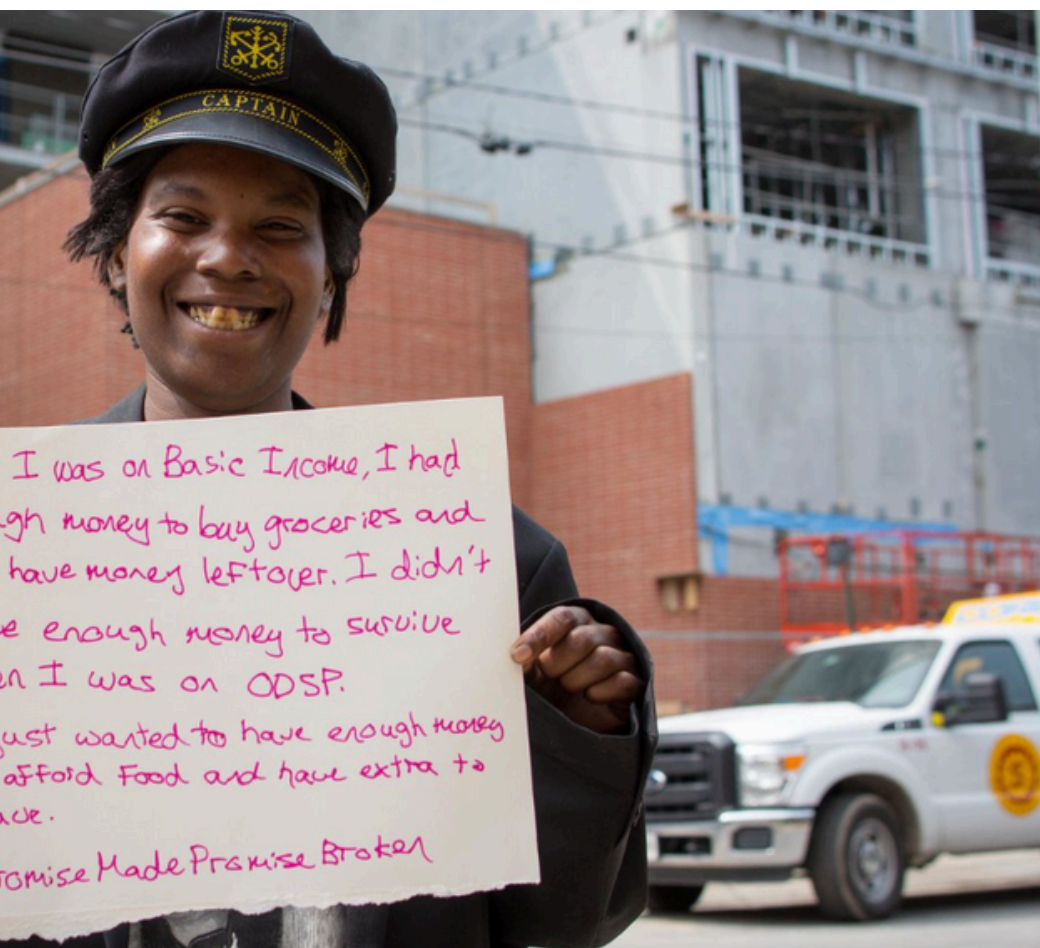 CAPTAIN
I was on Basic Income, I had
gh money to buy groceries and
have money leftover. I didn't
e enough money to survive
en I was on ODSP.
just wanted to have enough money
afford Food and have extra to
ave.
romise Made Promise Broken